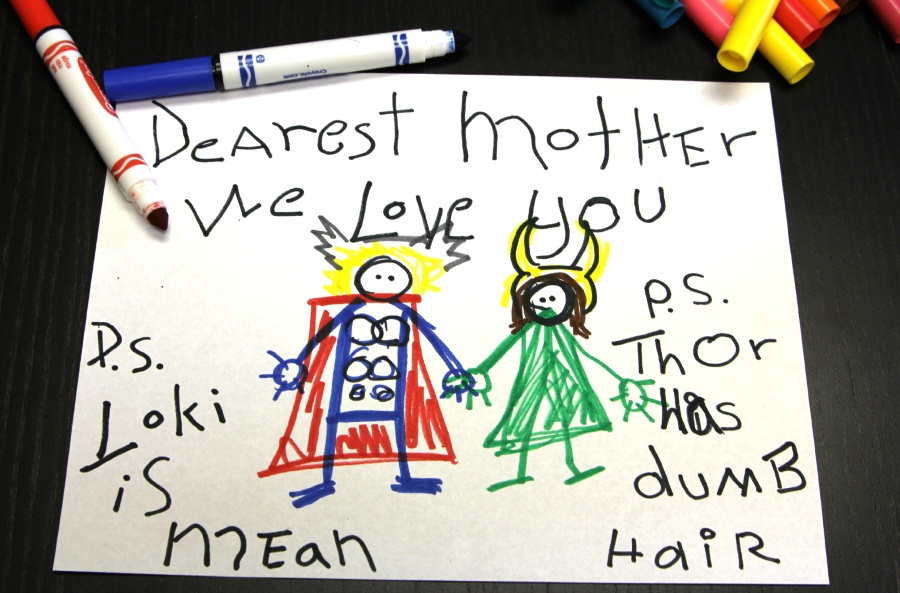 Dearest Mother
We Love You
P.s.
Loki
is
mean
p.s.
Thor
Has
dumb
Hair
Crayola.com